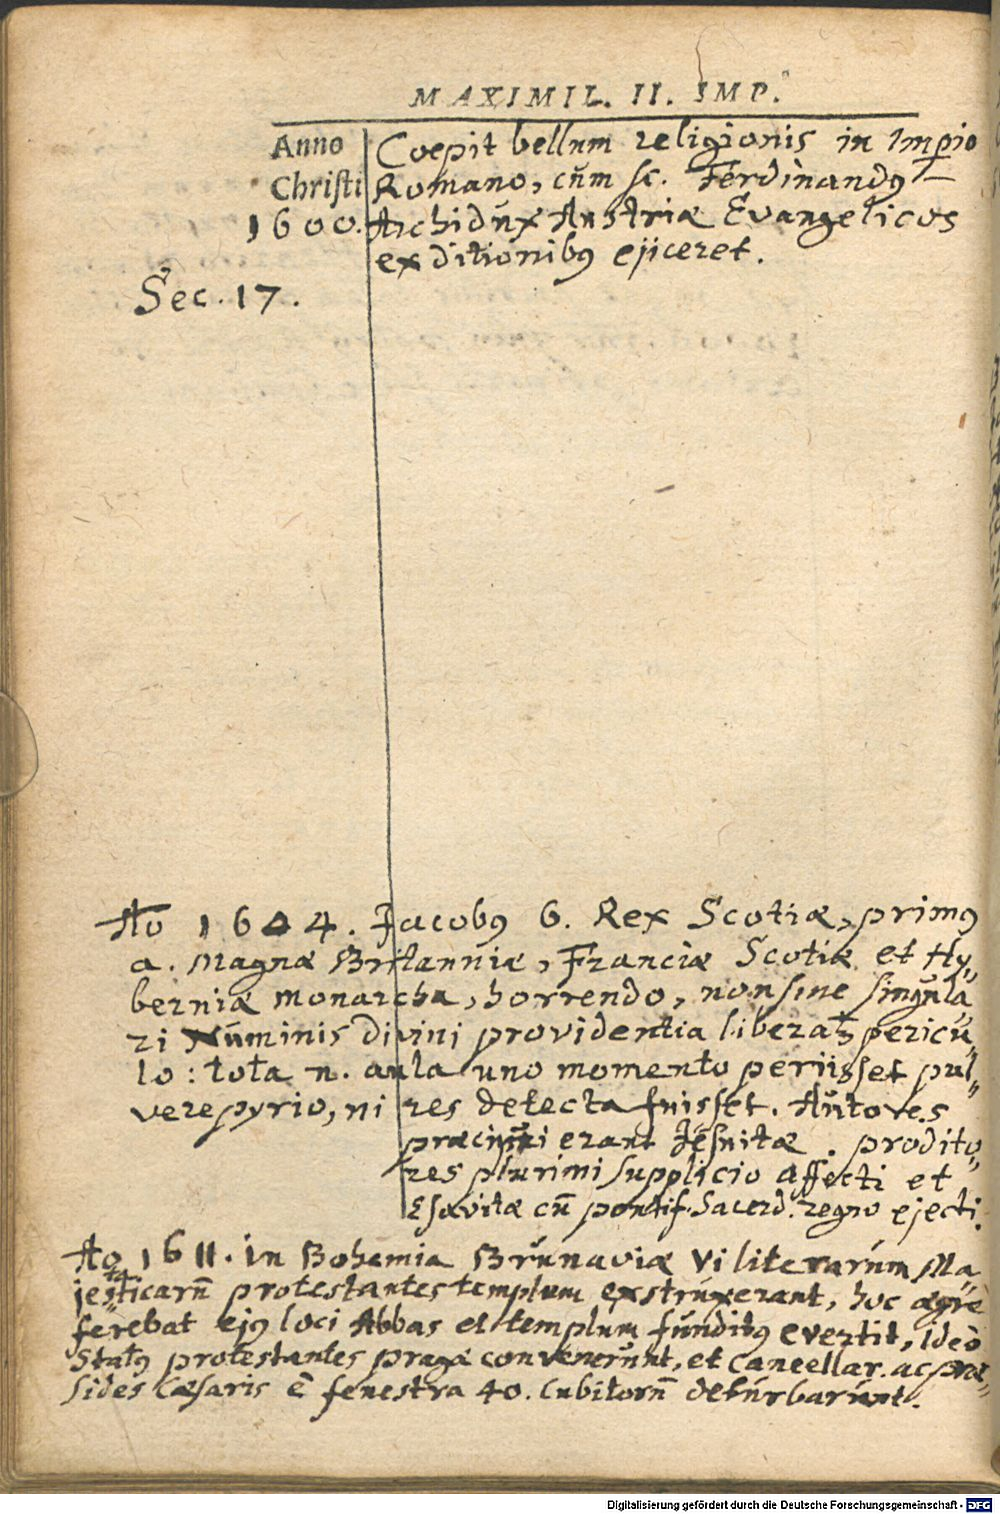 MAXIMIL. II. IMP.
Anno Christi 1600.
Coepit bellum religionis in Imperio
Romano, cum sc. Ferdinandus
Archidux Austriæ Evangelicos
ex ditionibus ejiceret.
Sec. 17.
Ao 1604. Jacobus 6. Rex Scotiæ, primus
a. Magnæ Britanniæ, Franciæ Scotiæ et Hy„
berniæ monarcha, horrendo, non sine singula
ri Numinis divini providentia liberatus pericu„
lo: tota n. aula uno momento periisset pul„
vere pyrio, ni res detecta fuisset. Autores
præcipui erant Jesuitæ. prodito„
res plurimi supplicio affecti et
Esavitæ cū pontif. Sacerd. regno ejecti.
Ao 1611. in Bohemia Brunaviæ vi literarum Ma„
jestaticarū protestantes templum exstruxerant, hoc ægrè
ferebat ejus loci Abbas et templum funditus evertit, Ideò
Status protestantes pragæ convenerunt, et cancellar. ac præ„
sides Cæsaris ē fenestra 40. cubitorū deturbarunt.
Digitalisierung gefördert durch die Deutsche Forschungsgemeinschaft - DFG